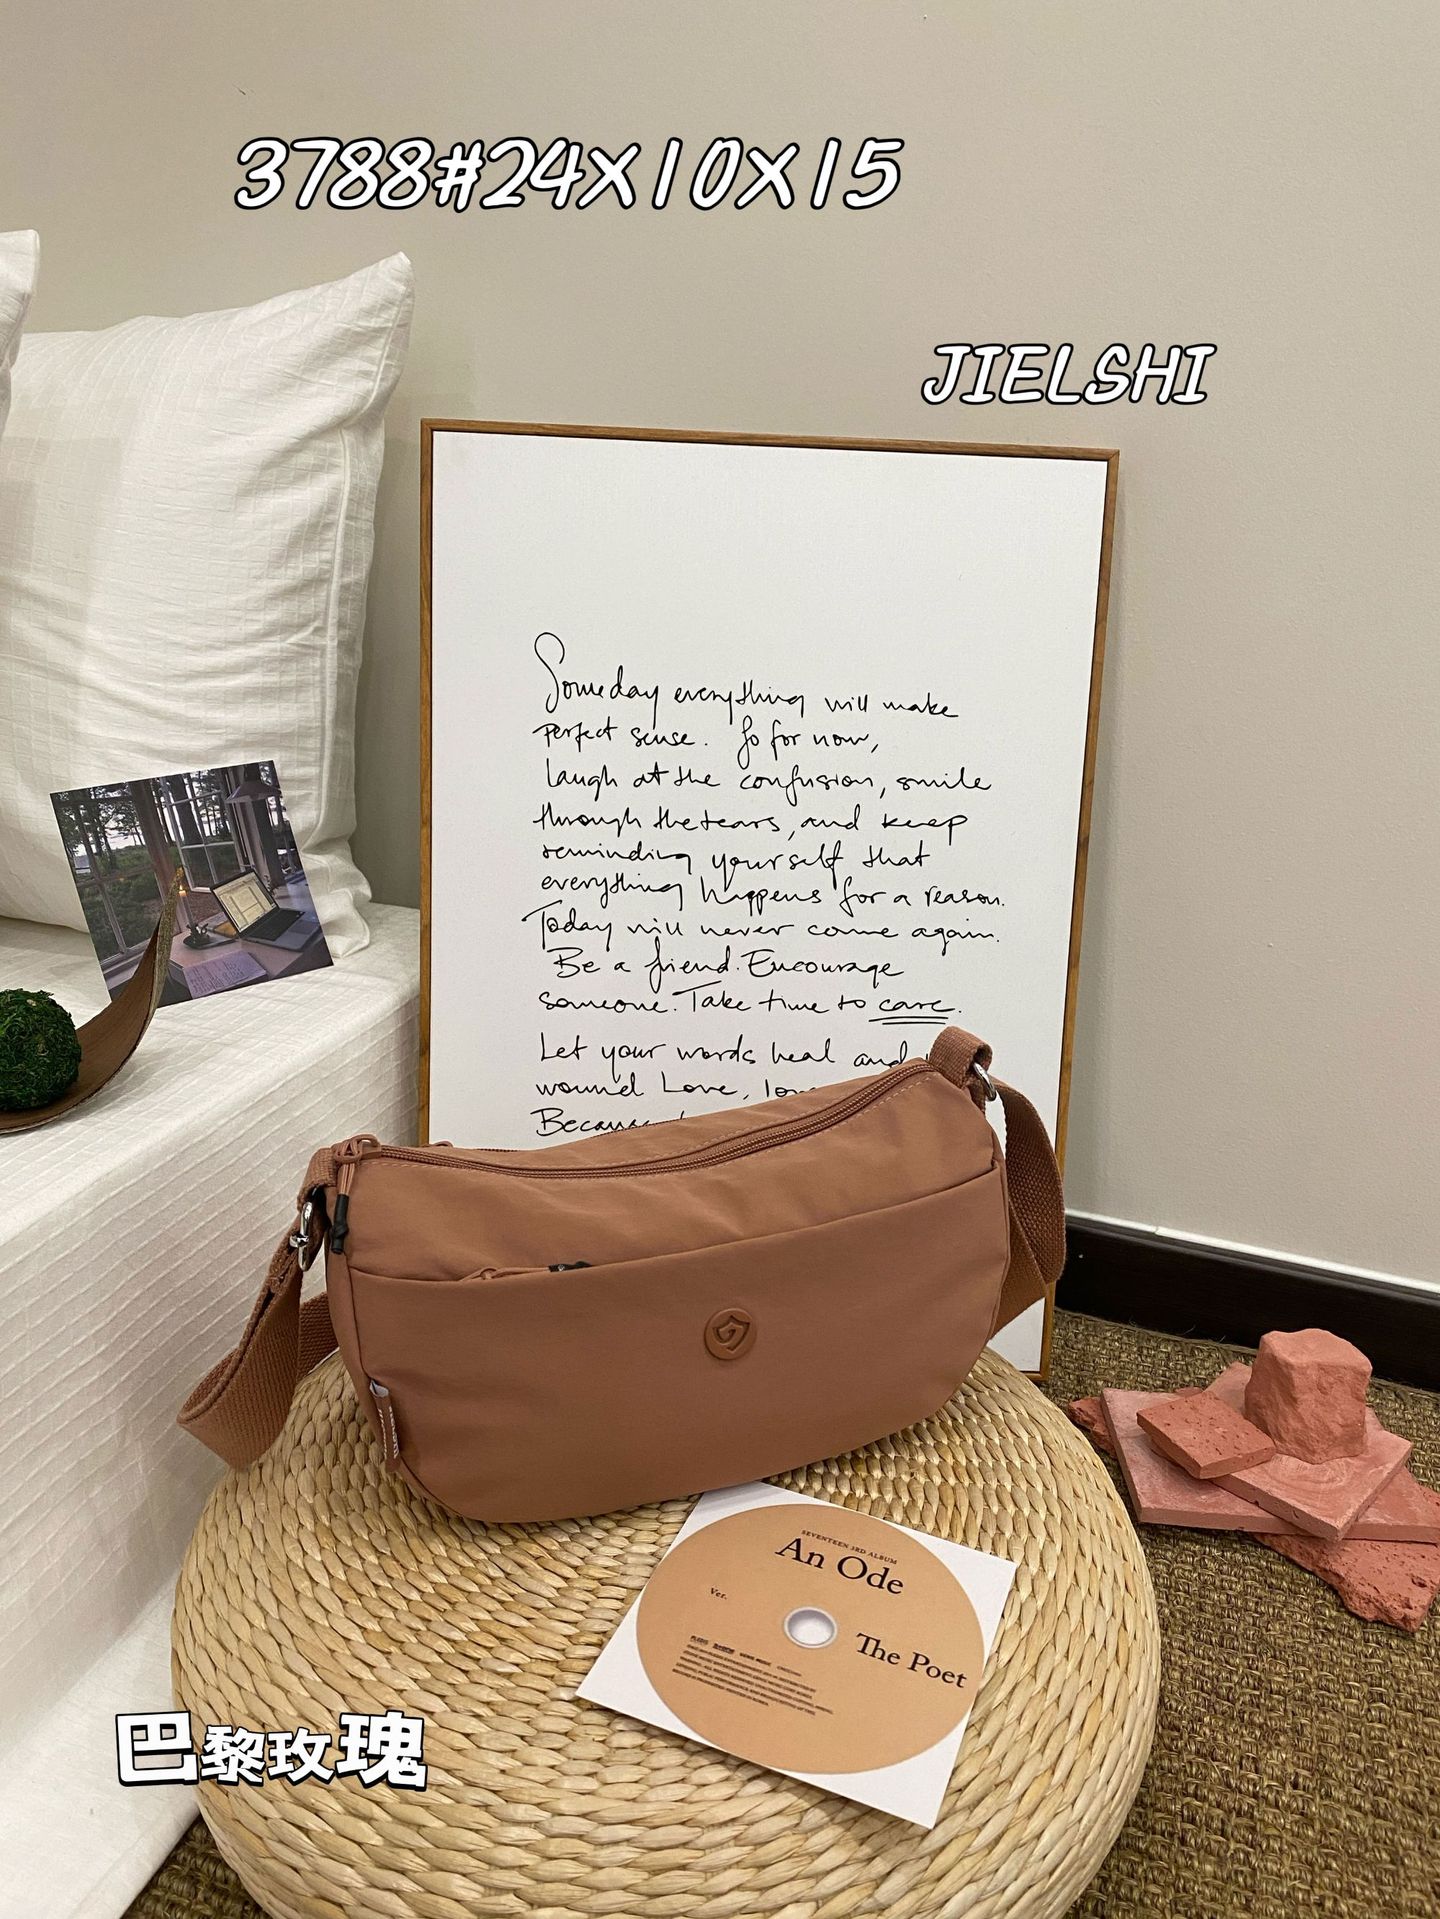 3788#24X10X15
JIELSHI
Someday everything will make
perfect sense. So for now,
laugh at the confusion, smile
through the tears, and keep
reminding yourself that
everything happens for a reason.
Today will never come again.
Be a friend. Encourage
someone. Take time to care.
Let your words heal and
wound Love,
SEVENTEEN 3RD ALBUM
An Ode
Ver.
The Poet
巴黎玫瑰